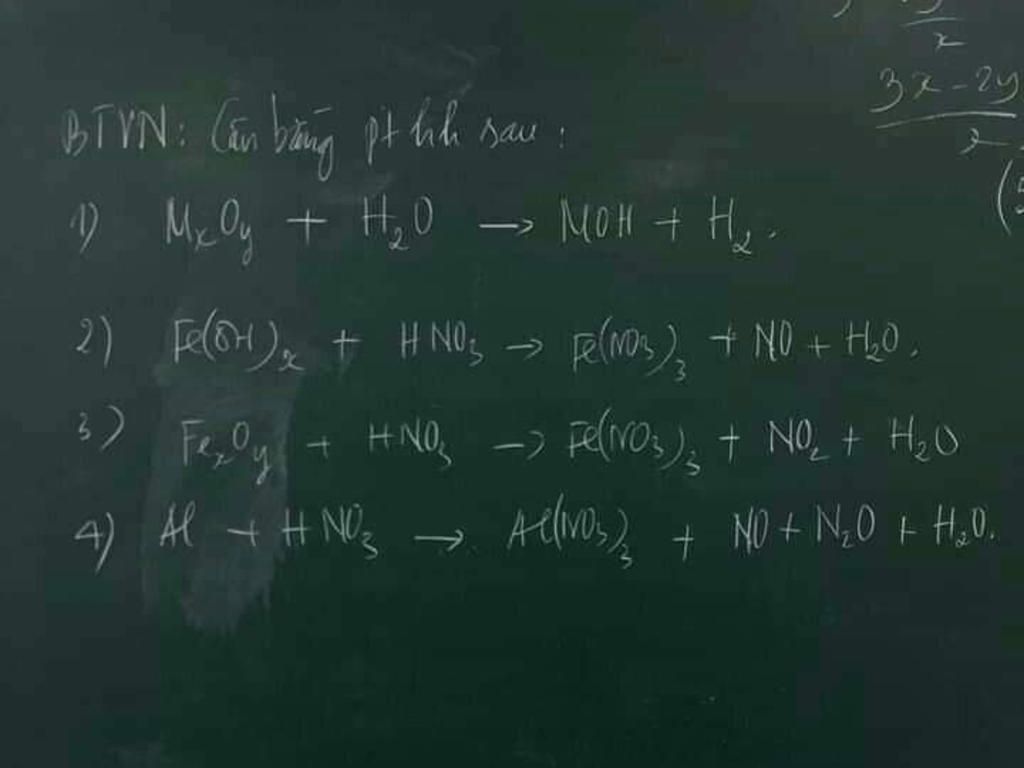 x
3x-2y
BTVN: Cân bằng pt hh sau:
1) MₓOᵧ + H₂O → MOH + H₂.
2) Fe(OH)ₓ + HNO₃ → Fe(NO₃)₃ + NO + H₂O.
3) FeₓOᵧ + HNO₃ → Fe(NO₃)₃ + NO₂ + H₂O
4) Al + HNO₃ → Al(NO₃)₃ + NO + N₂O + H₂O.